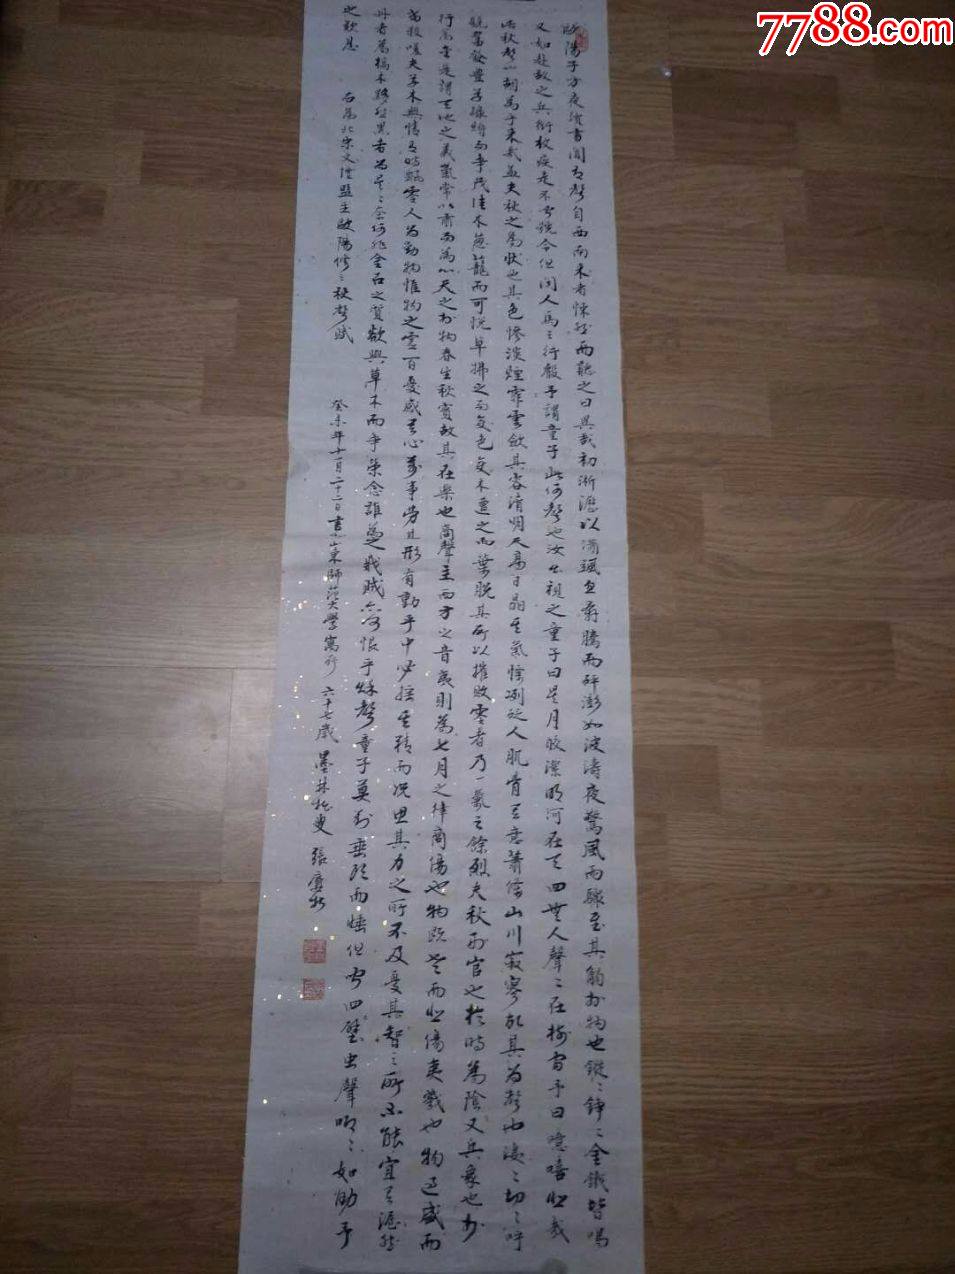 7788.com
歐陽子方夜讀書聞有聲自西南來者悚然而聽之曰異哉初淅瀝以瀟颯忽奔騰而砰澎如波濤夜驚風雨驟至其觸於物也鏦〻錚〻金鐵皆鳴
又如赴敵之兵銜枚疾走不聞號令但聞人馬之行聲予謂童子此何聲也汝出視之童子曰星月皎潔明河在天四無人聲〻在樹間予曰噫嘻悲哉
此秋聲也胡為乎來哉蓋夫秋之為狀也其色慘淡煙霏雲斂其容清明天高日晶其氣慄冽砭人肌骨其意蕭條山川寂寥故其為聲也淒〻切〻呼
號奮發豐草綠縟而爭茂佳木蔥蘢而可悅草拂之而變色木遭之而葉脫其所以摧敗零者乃一氣之餘烈夫秋刑官也於時為陰又兵象也於
行為金是謂天地之義氣常以肅而為心天之於物春生秋實故其在樂也商聲主西方之音夷則為七月之律商傷也物既老而悲傷夷戮也物過盛而
當殺嗟夫草木無情有時飄零人為動物惟物之靈百憂感其心萬事勞其形有動乎中必搖其精而況思其力之所不及憂其智之所不能宜其渥然
丹者為槁木黟然黑者為星〻奈何非金石之質欲與草木而爭榮念誰為之戕賊亦何恨乎秋聲童子莫對垂頭而睡但聞四壁虫聲唧〻如助予
之歎息 右為北宋文壇盟主歐陽修之秋聲賦 癸未年十一月二十二日書於山東師范大學寓所 六十七歲 墨林拙叟 張